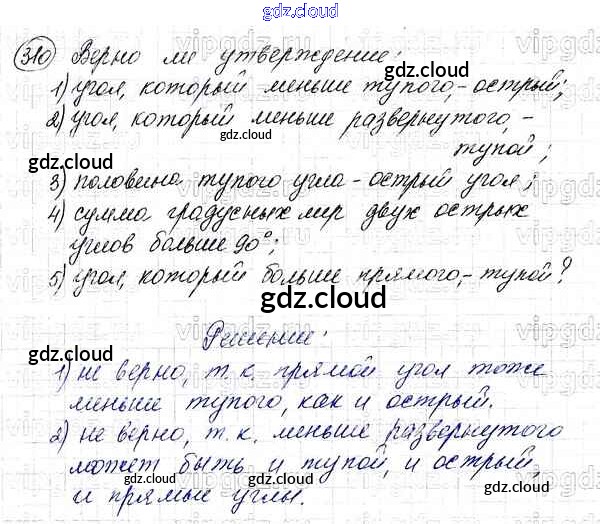 gdz.cloud
310 Верно ли утверждение:
1) угол, который меньше тупого,-острый;
2) угол, который меньше развернутого,-
тупой;
3) половина тупого угла-острый угол;
4) сумма градусных мер двух острых
углов больше 90°;
5) угол, который больше прямого,-тупой?
gdz.cloud
Решение:
1) не верно, т.к. прямой угол тоже
меньше тупого, как и острый.
2) не верно, т.к. меньше развернутого
может быть и тупой, и острый
и прямые углы.